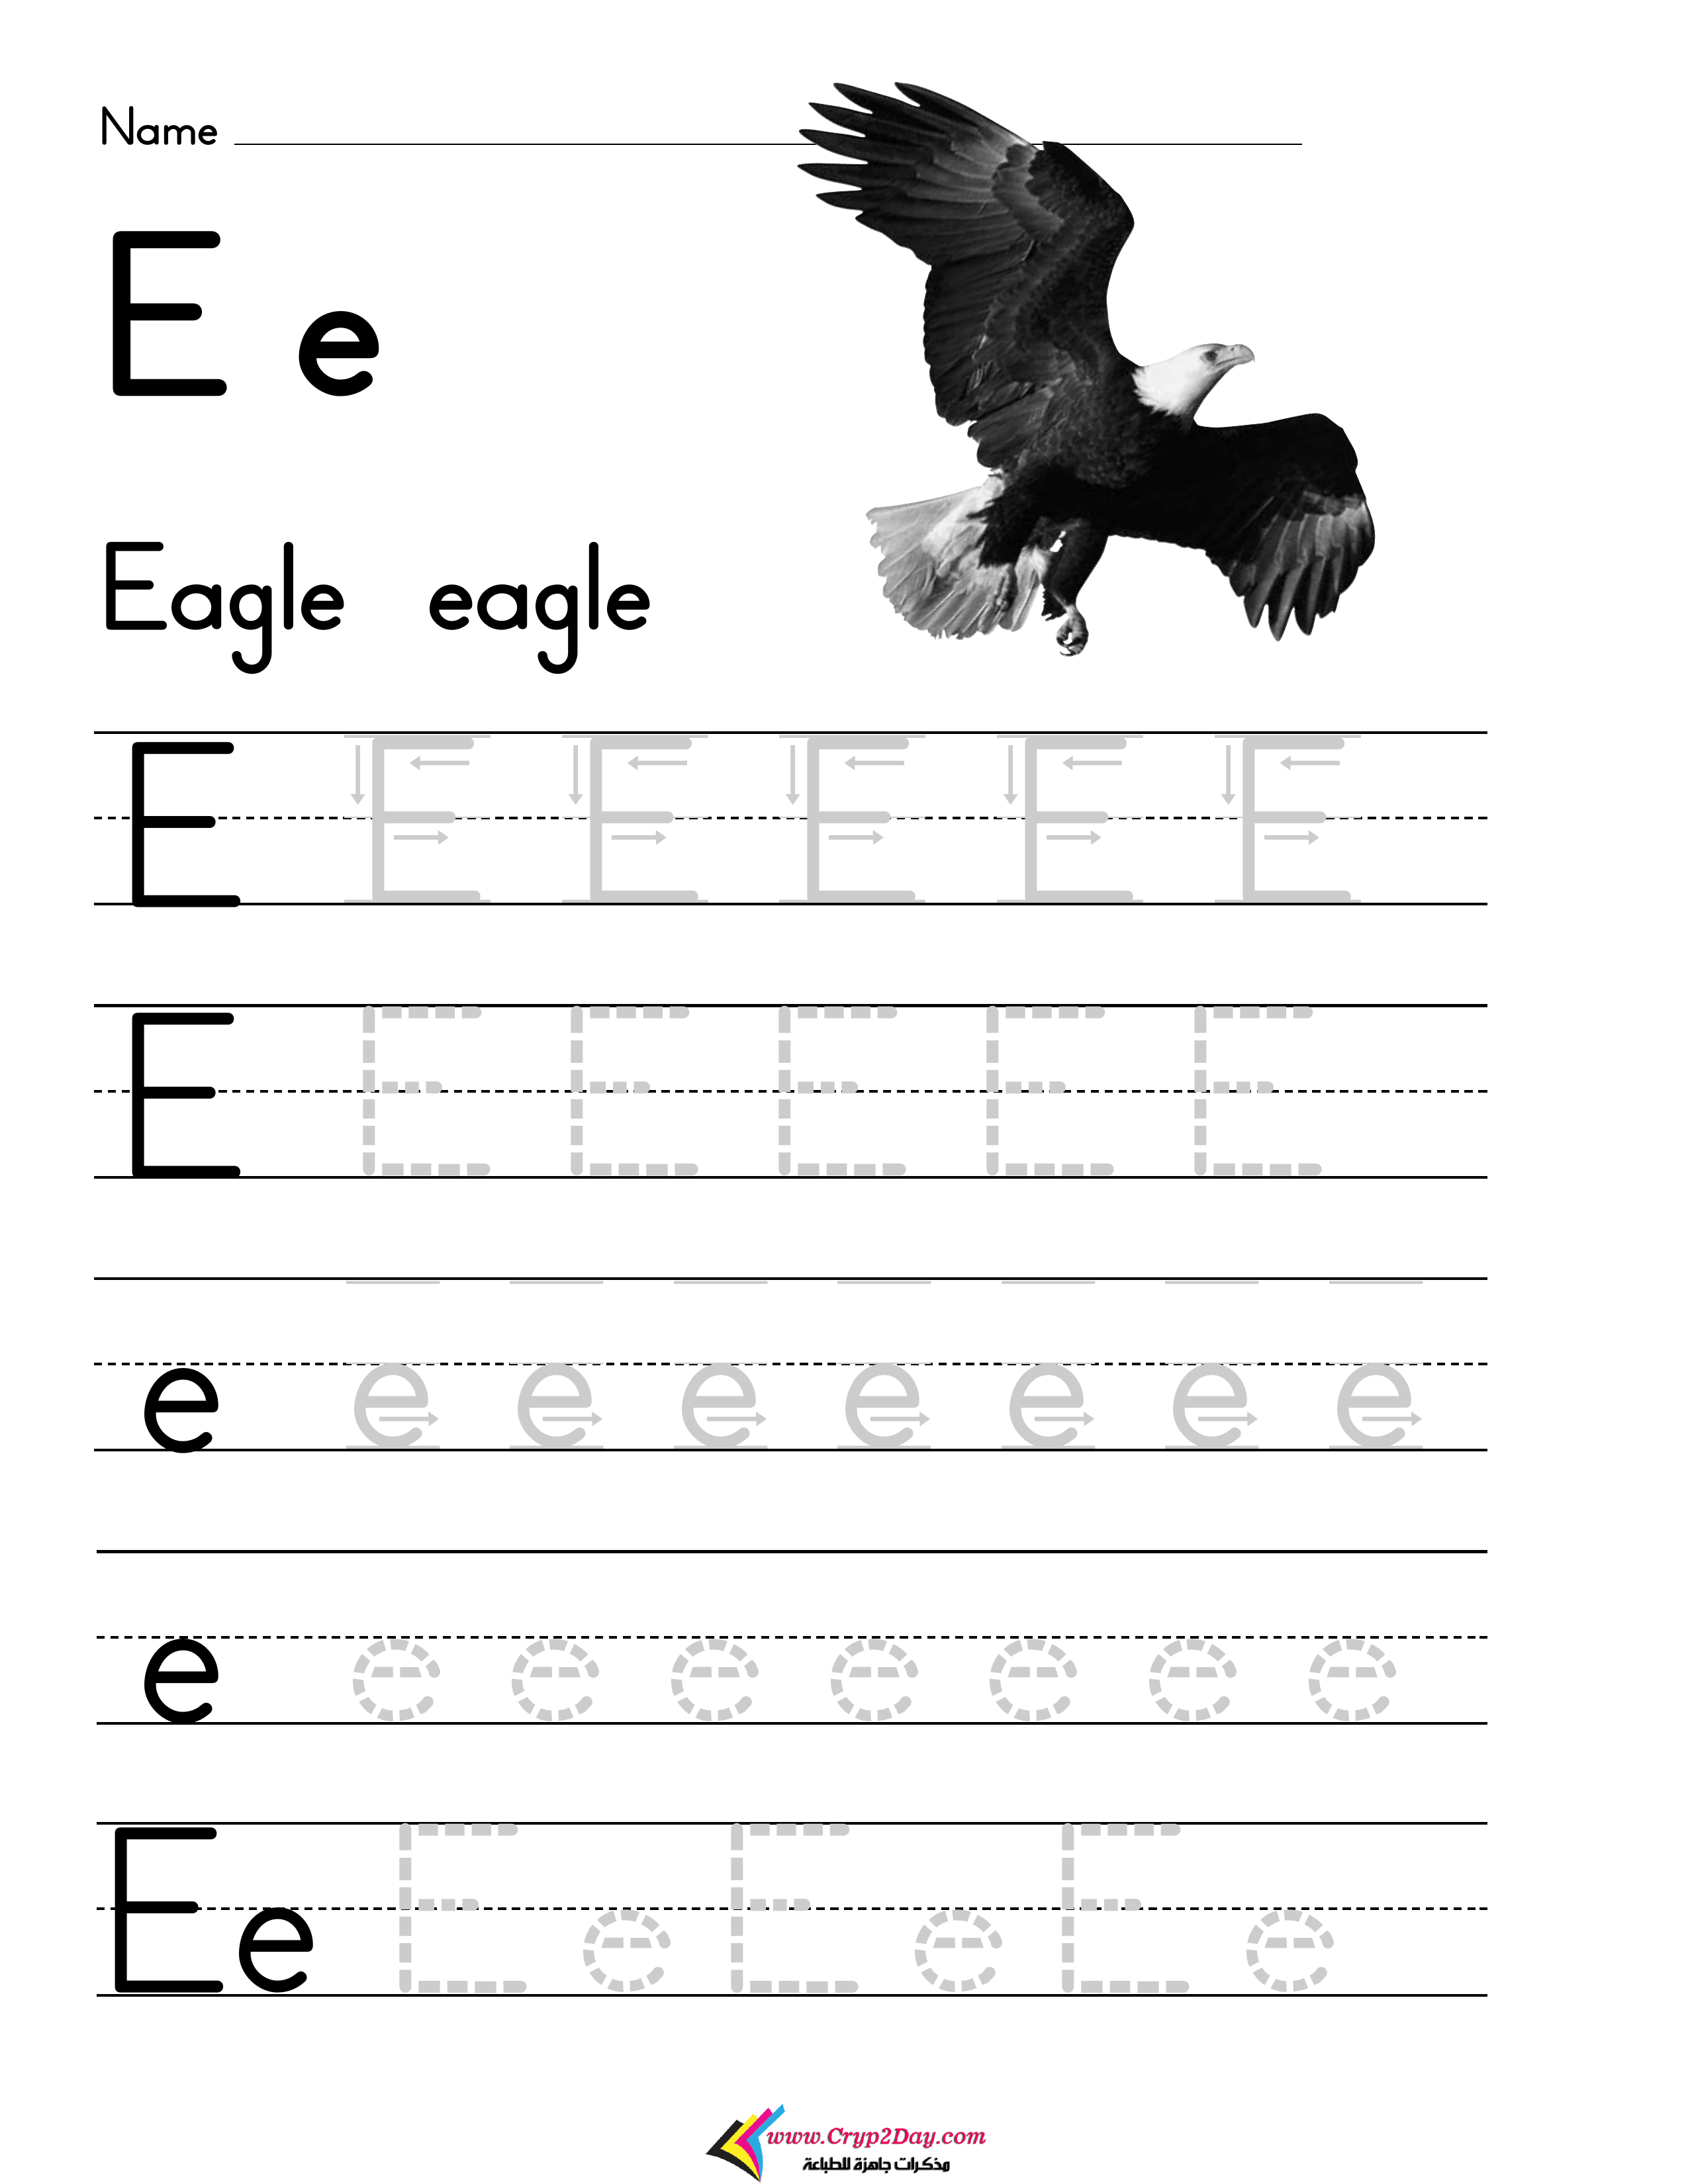 Name
E e
Eagle eagle
E E E E E E
E E E E E E
e e e e e e e e
e e e e e e e e
Ee E e E e E e
www.Cryp2Day.com
مذكرات جاهزة للطباعة